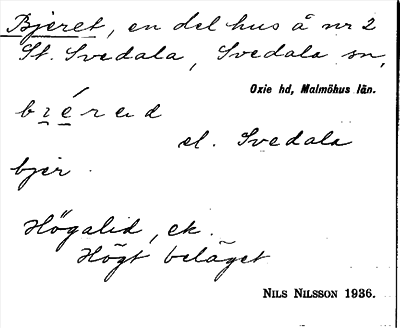 Bjeret, en del hus å nr 2
St. Svedala, Svedala sn,
Oxie hd, Malmöhus län.
el. Svedala
bjer.
Högalid, ek.
Högt beläget
NILS NILSSON 1936.